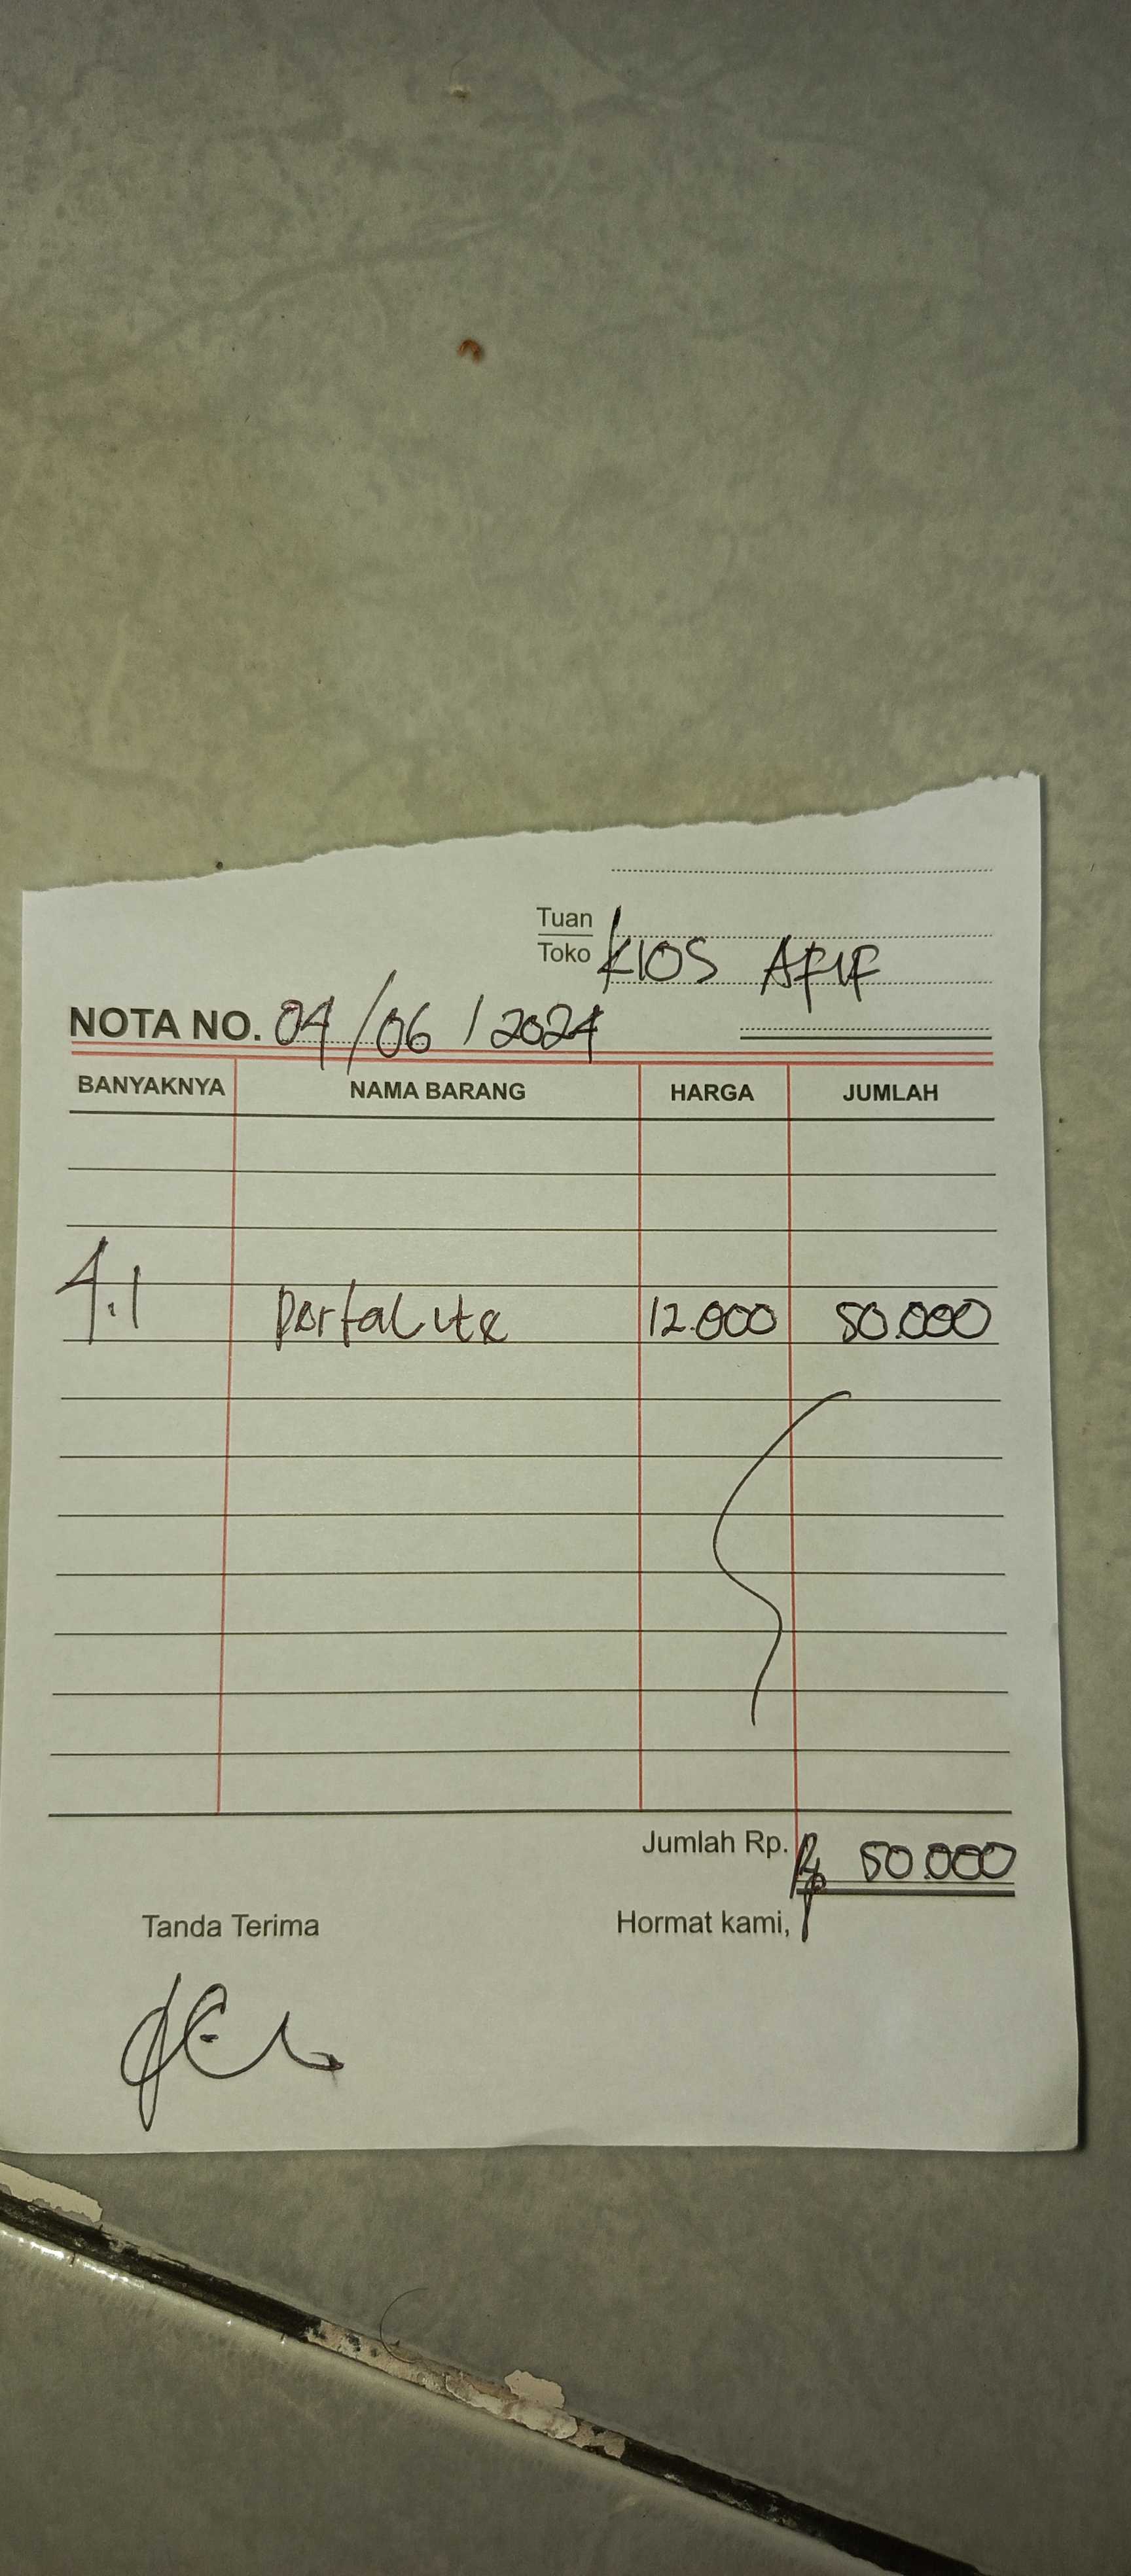 Tuan
Toko KIOS AFIF
NOTA NO. 04/06/2024
BANYAKNYA NAMA BARANG HARGA JUMLAH
4.1 Pertalite 12.000 50.000
Jumlah Rp. Rp 50.000
Tanda Terima Hormat kami,